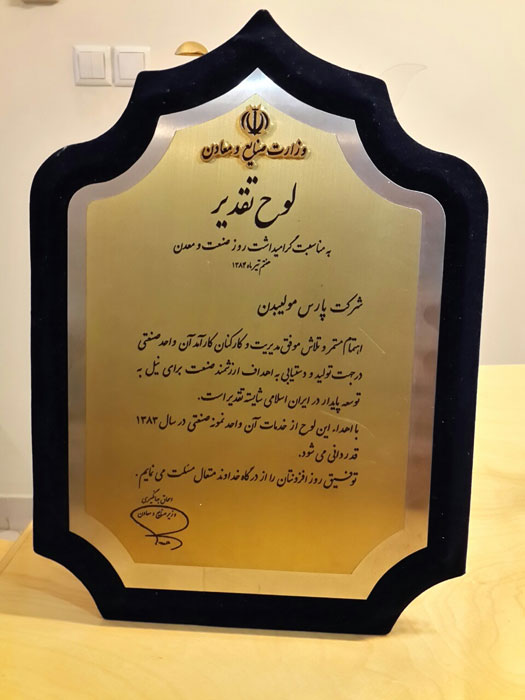 وزارت صنایع و معادن
لوح تقدیر
به مناسبت گرامیداشت روز صنعت و معدن
هفتم تیرماه ۱۳۸۴
شرکت پارس مولیبدن
اهتمام مستمر و تلاش موفق مدیریت و کارکنان کارآمد آن واحد صنعتی
در جهت تولید و دستیابی به اهداف ارزشمند صنعت برای نیل به
توسعه پایدار در ایران اسلامی شایسته تقدیر است.
با اهداء این لوح از خدمات آن واحد نمونه صنعتی در سال ۱۳۸۳
قدردانی می شود.
توفیق روز افزونتان را از درگاه خداوند متعال مسئلت می نمایم.
اسحاق جهانگیری
وزیر صنایع و معادن